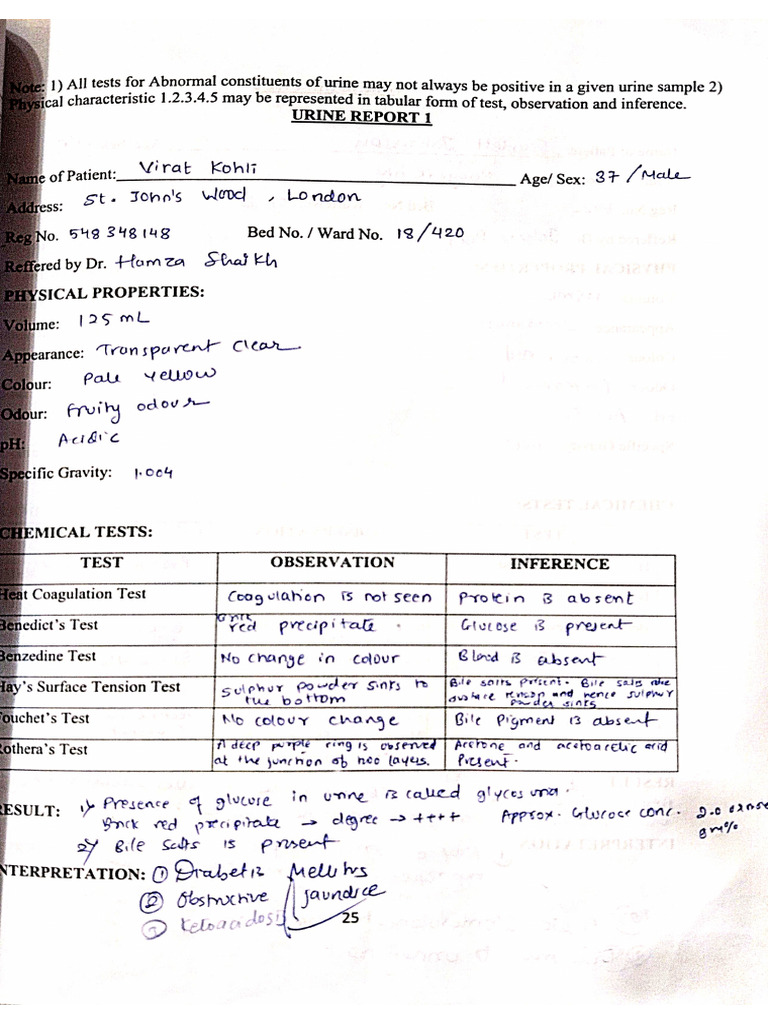 Note: 1) All tests for Abnormal constituents of urine may not always be positive in a given urine sample 2)
Physical characteristic 1.2.3.4.5 may be represented in tabular form of test, observation and inference.
URINE REPORT 1
Name of Patient: Virat Kohli Age/ Sex: 37 / Male
Address: St. John's Wood, London
Reg No. 548 348 148 Bed No. / Ward No. 18/420
Reffered by Dr. Hamza Shaikh
PHYSICAL PROPERTIES:
Volume: 125 mL
Appearance: Transparent clear
Colour: Pale yellow
Odour: Fruity odour
pH: Acidic
Specific Gravity: 1.004
CHEMICAL TESTS:
TEST OBSERVATION INFERENCE
Heat Coagulation Test Coagulation is not seen Protein is absent
Benedict's Test Brick red precipitate. Glucose is present
Benzedine Test No change in colour Blood is absent
Hay's Surface Tension Test Sulphur powder sinks to the bottom Bile salts present. Bile salts surface tension and hence sulphur powder sinks
Fouchet's Test No colour change Bile Pigment is absent
Rothera's Test A deep purple ring is observed at the junction of two layers. Acetone and acetoacetic acid Present.
RESULT: 1) Presence of glucose in urine is called
Brick red precipitate → degree → ++++ Approx. Glucose conc. 2.0 gm%
2) Bile Salts is present
INTERPRETATION: ① Diabetis Mellitus
② Obstructive jaundice
③ Ketoacidosis
25